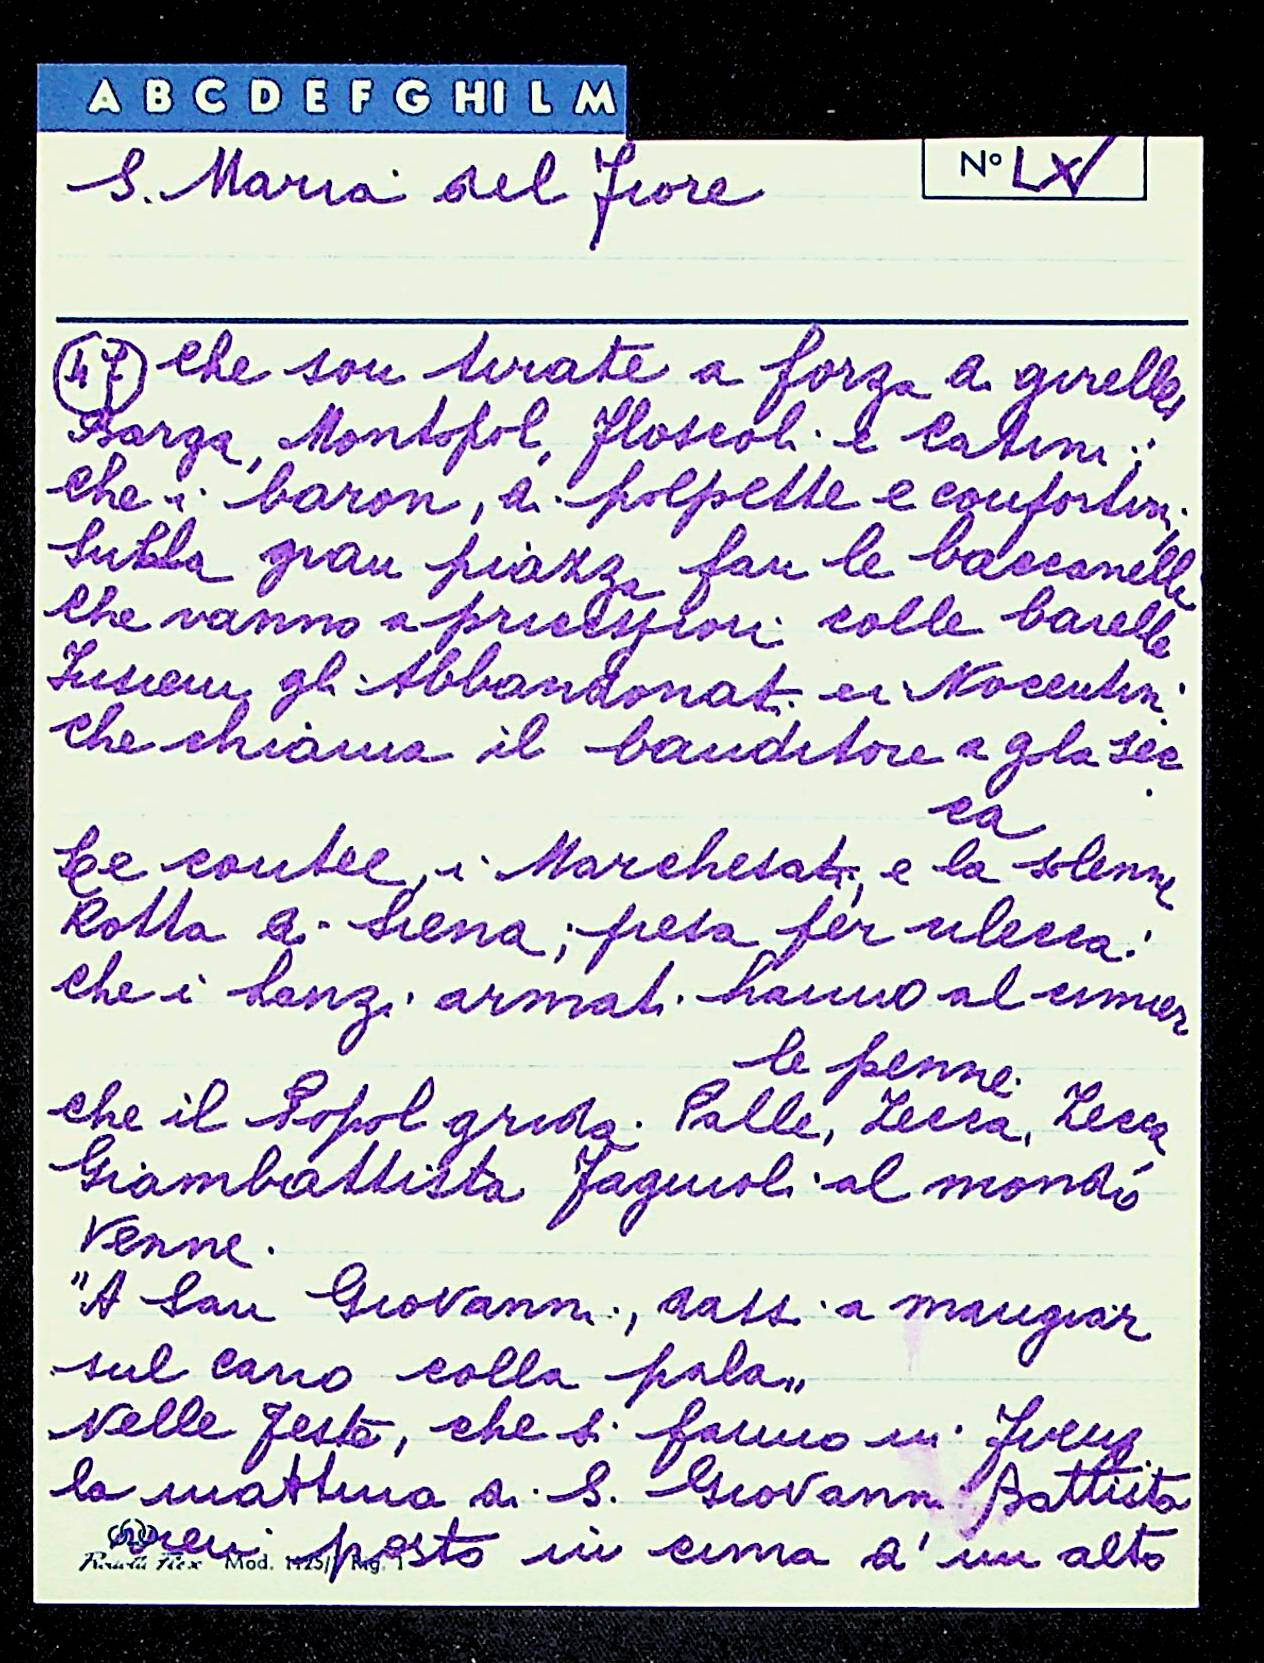 A B C D E F G HI L M
S. Maria del Fiore
N° LX
47 che son tirate a forza di girelle,
Barga, Montopol, Floscoli e Catini;
che i baron, di polpette e confortini,
Sulla gran piazza fan le baccanelle
che vanno a pricissioni colle barelle
Insiem gli Abbandonati ei Nocentini
che chiama il banditore a gola sec
ca
Le contee, i Marchesati, e la solenne
Rotta di Siena; presa per
che i Lanzi armati hanno al cimier
le penne.
che il Popol grida. Palle, Zecca, Zecca
Giambattista Fagiuoli al mondo
venne.
"A San Giovanni, dassi a mangiar
sul carro colla pala"
Nelle Feste, che si fanno in Firenz
la mattina di S. Giovanni Battista
vien posto in cima d'un alto
Mod. 1125/ Rig. 1